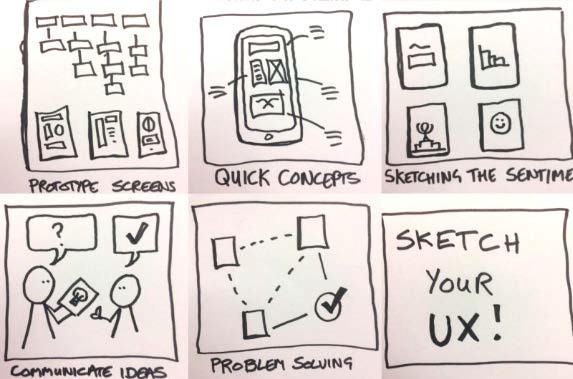 PROTOTYPE SCREENS
QUICK CONCEPTS
SKETCHING THE SENTIME
?
COMMUNICATE IDEAS
PROBLEM SOLVING
SKETCH
YOUR
UX!